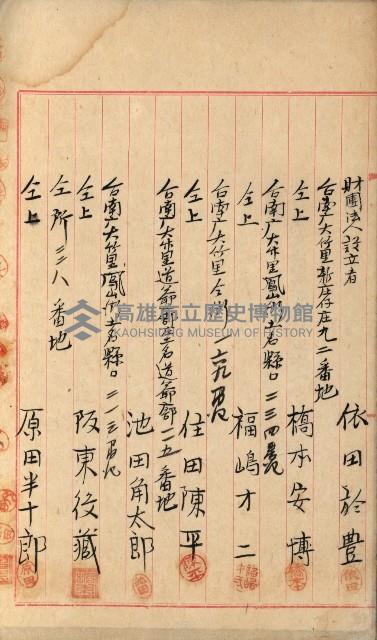 財團法人設立者
台南廳大竹里新庄庄九二番地
依田於豊
仝上
橋本安博
台南廳大竹里鳳山街土名縣口二三四番戶
仝上
福嶋才二
台南廳大竹里仝街一六九番戶
仝上
住田陳平
台南廳大竹里道爺廍庄土名道爺廍二五番地
池田角太郎
台南廳大竹里鳳山街土名縣口二一三番戶
仝上
阪東役藏
仝所三二八番地
仝上
原田半十郎
高雄市立歷史博物館
KAOHSIUNG MUSEUM OF HISTORY